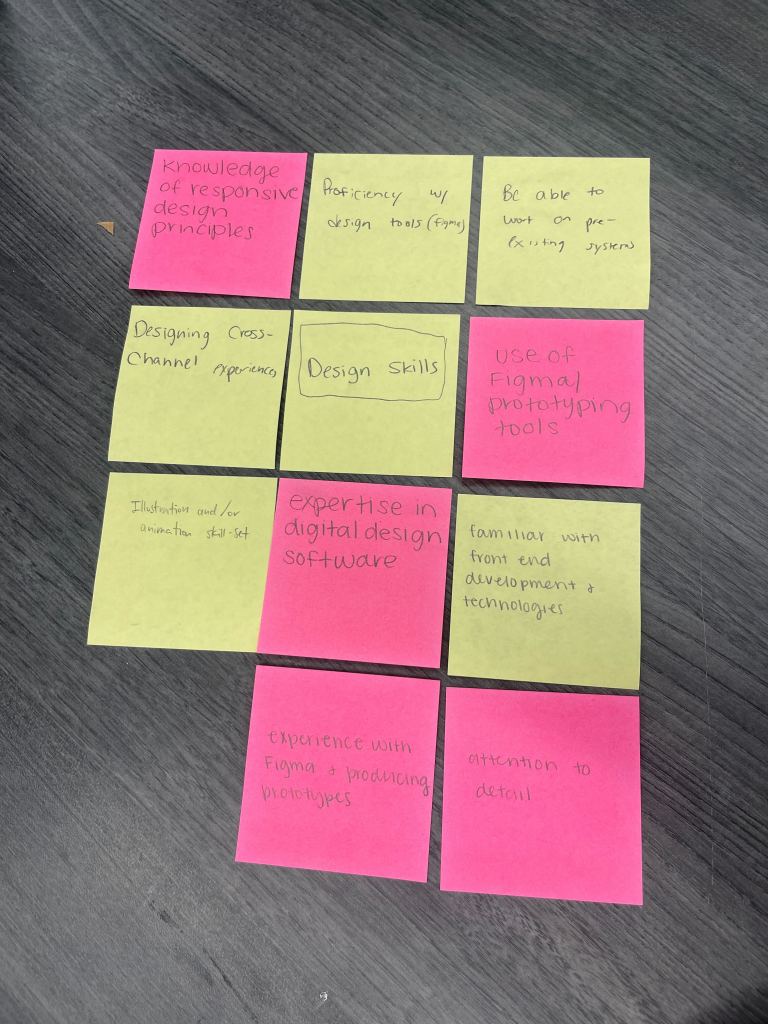 Knowledge
of responsive
design
principles
Proficiency w/
design tools (figma)
Be able to
work on pre-
existing systems
Designing Cross-
Channel experiences
Design Skills
use of
Figma/
prototyping
tools
Illustration and/or
animation skill-set
expertise in
digital design
software
familiar with
front end
development +
technologies
experience with
Figma + producing
prototypes
attention to
detail